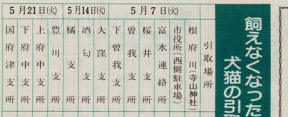 飼えなくなった
犬猫の引取
引取場所
5月7日(火)
根府川(寺山神社)
市役所(西側駐車場)
富水連絡所
桜井支所
曽我支所
下曽我支所
5月14日(火)
大窪支所
酒匂支所
橘支所
5月21日(火)
豊川支所
上府中支所
下府中支所
国府津支所